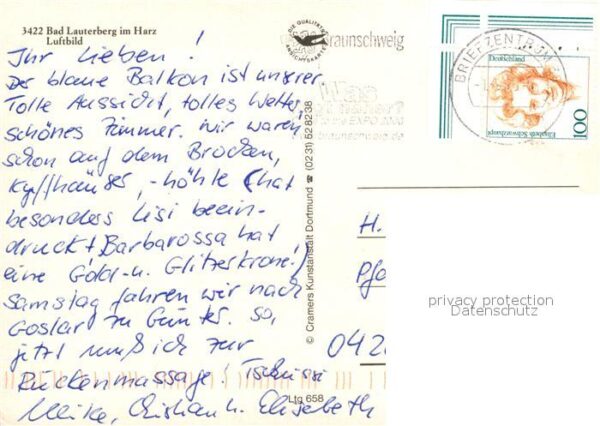 3422 Bad Lauterberg im Harz
Luftbild
Ihr Lieben!
Der blaue Balkon ist unserer
Tolle Aussicht, tolles Wetter,
schönes Zimmer. Wir waren
schon auf dem Brocken,
Kyffhäuser, -höhle (hat
besonders Lisi beein-
druckt, Barbarossa hat
eine Gold- u. Glitzerkrone!)
Samstag fahren wir nach
Goslar zu So,
jetzt muß ich zur
Rückenmassage! Tschüssi
Christian u. Elisabeth
DIE QUALITÄTS
ANSICHTSKARTE
Braunschweig
EXPO 2000
© Cramers Kunstanstalt Dortmund ☎ (0231) 5282-38
Ltg 658
BRIEFZENTRUM
Deutschland
Elisabeth Schwarzhaupt
100
H.
Pfa
042
privacy protection
Datenschutz